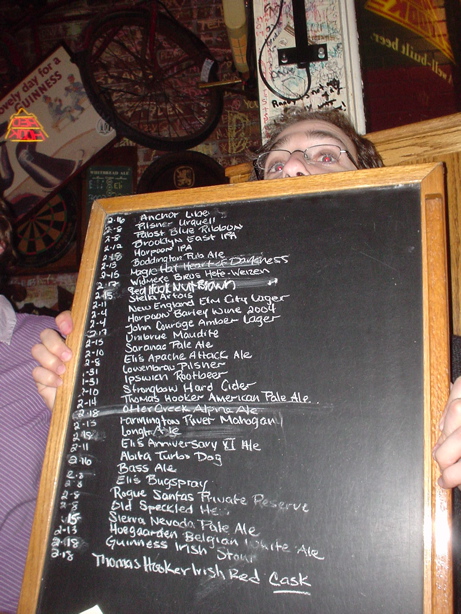 lovely day for a
GUINNESS
well-built beer.
WHITBREAD ALE
2-16 Anchor Libe
2-8 Pilsner Urquell
2-8 Pabst Blue Ribbon
2-12 Brooklyn East IPA
2-18 Harpoon IPA
2-13 Boddington Pub Ale
2-15 Magic Hat Heart of Darkness
2-17 Widmere Bros Hefe-Weizen
2-15 Red Hook Nut Brown
2-11 Stella Artois
2-4 New England Elm City Lager
2-4 Harpoon Barley Wine 2004
2-17 John Courage Amber Lager
2-15 Unibrue Maudite
2-10 Saranac Pale Ale
2-8 Eli's Apache Attack Ale
1-31 Lowenbrau Pilsner
1-31 Ipswich Rootbeer
2-10 Strongbow Hard Cider
2-14 Thomas Hooker American Pale Ale
2-18 Otter Creek Alpine Ale
2-13 Farmington River Mahogany
2-15 Long Ale
2-11 Eli's Anniversary VI Ale
2-16 Abita Turbo Dog
Bass Ale
2-8 Eli's Bugspray
2-8 Rogue Santas Private Reserve
2-8 Old Speckled Hen
2-15 Sierra Nevada Pale Ale
2-13 Hoegaarden Belgian White Ale
2-18 Guinness Irish Stout
2-18 Thomas Hooker Irish Red Cask